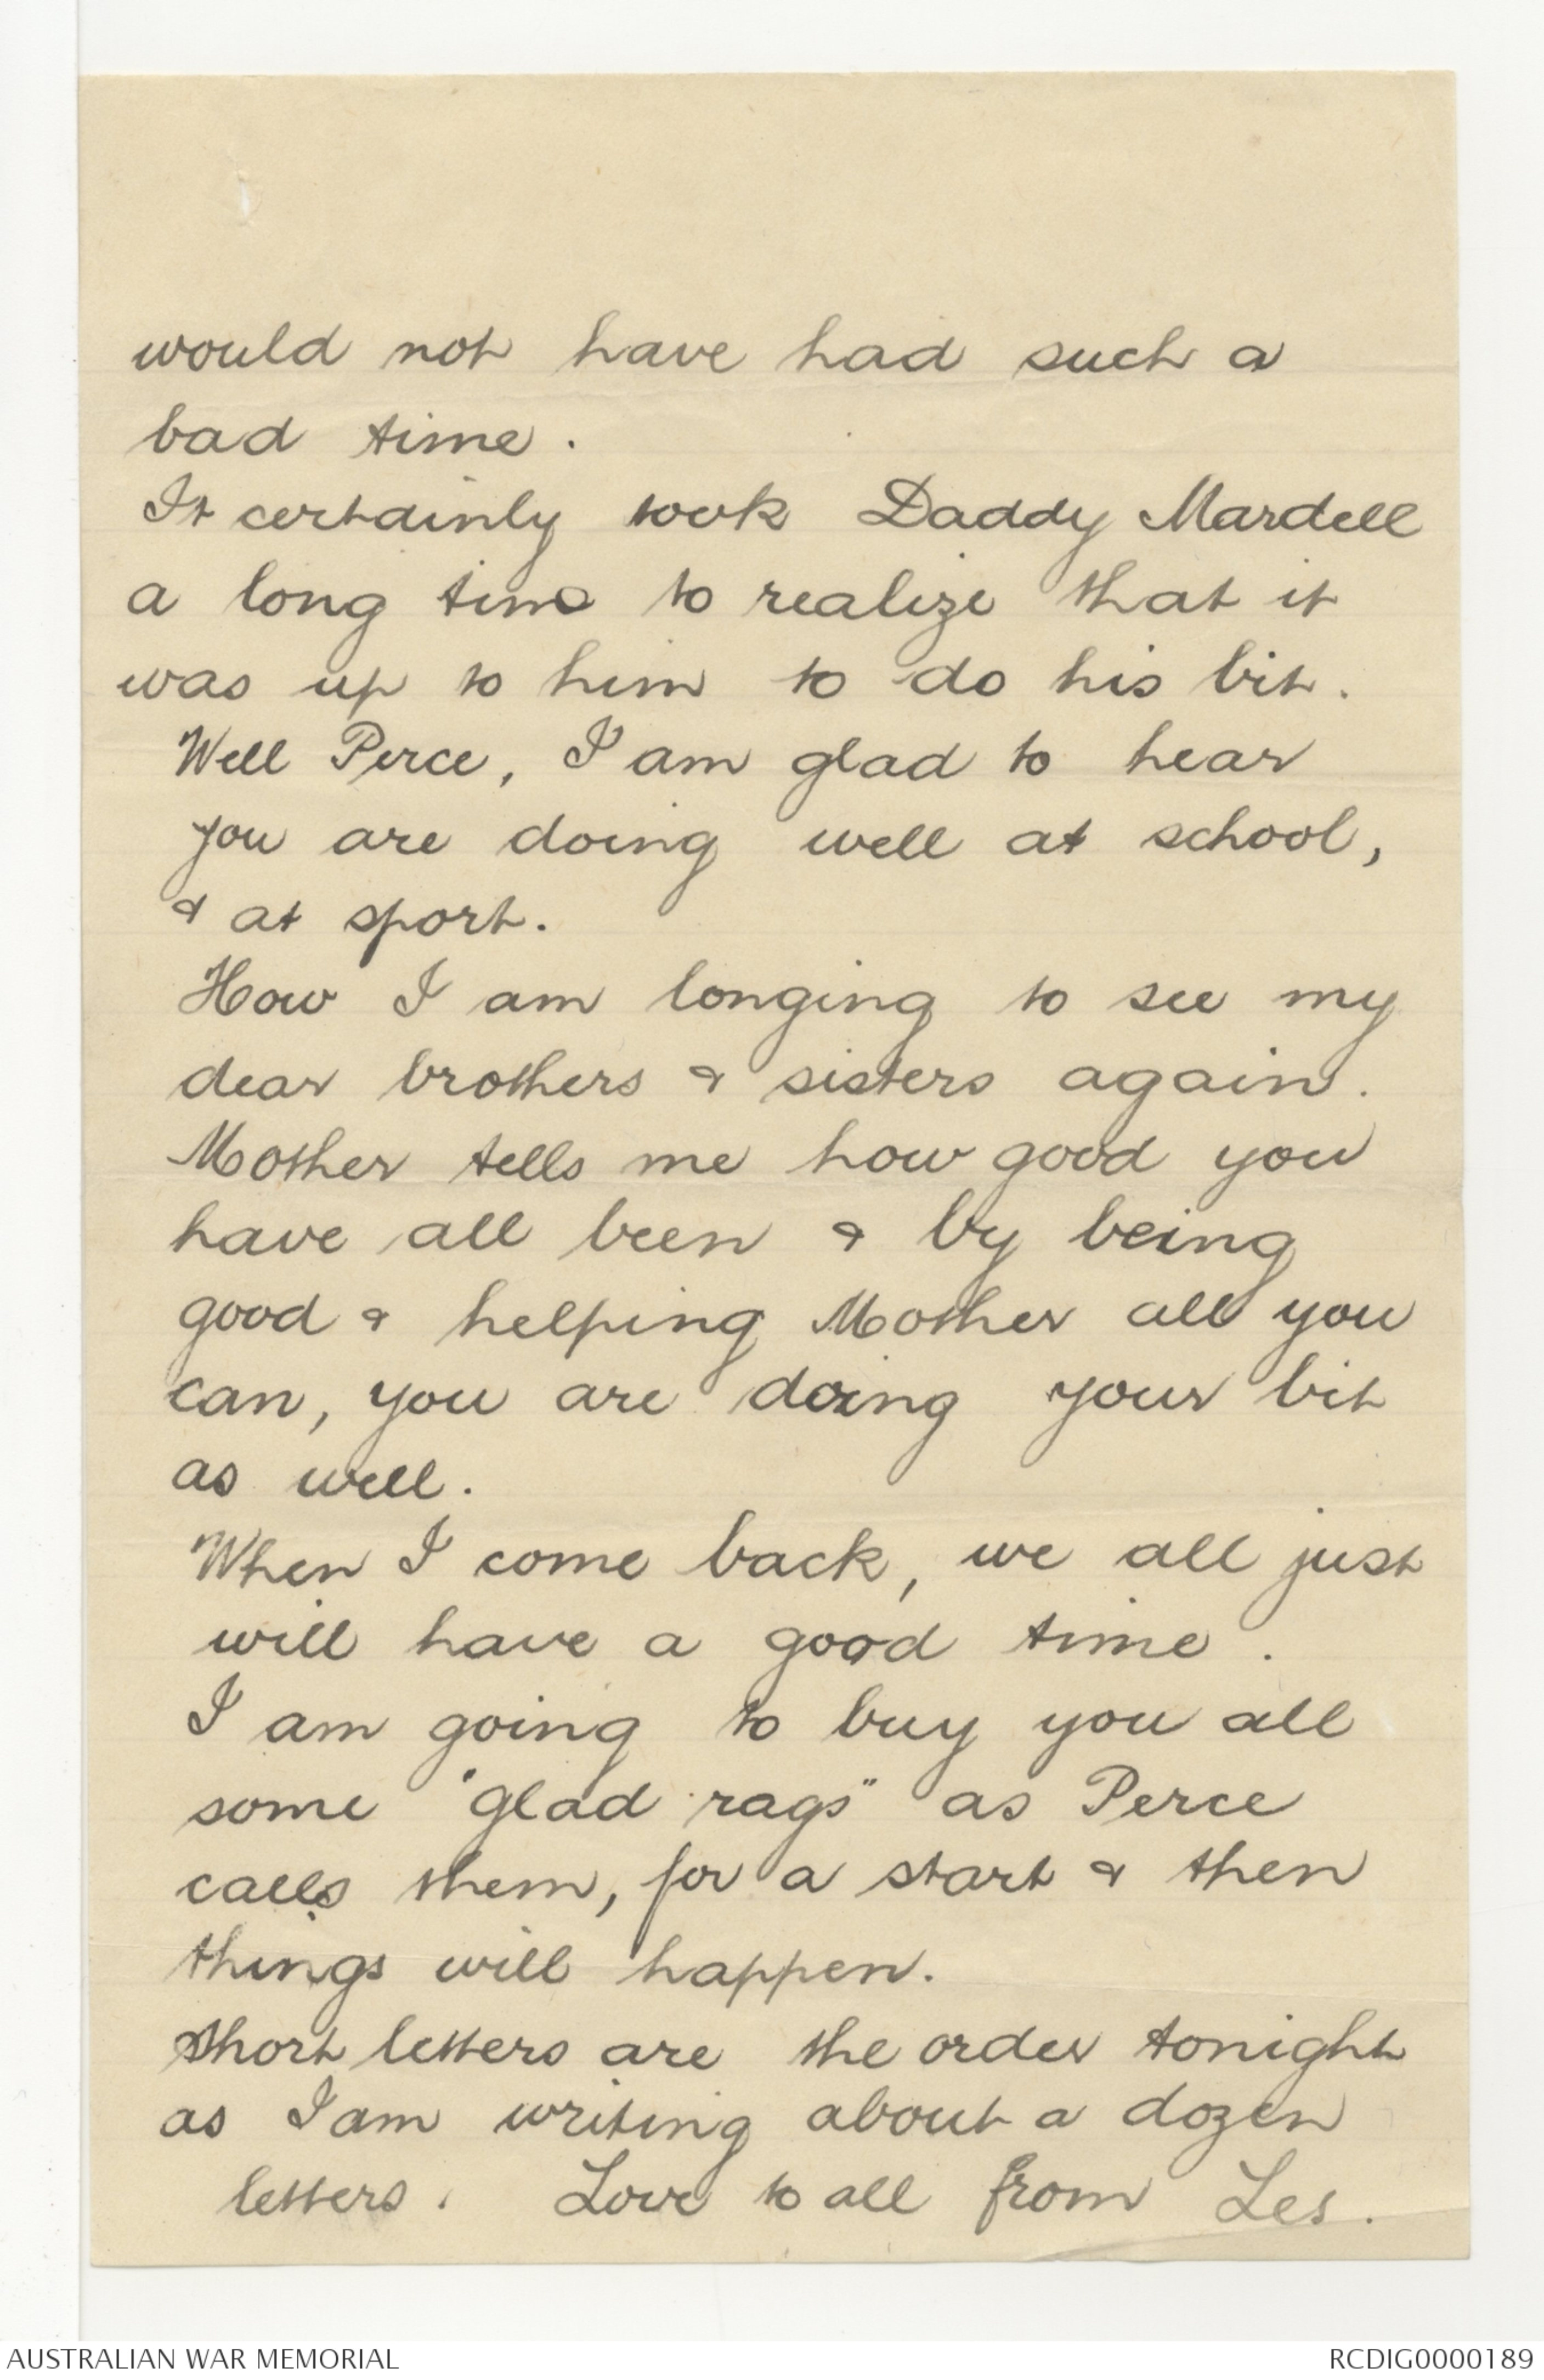 would not have had such a
bad time.
It certainly took Daddy Mardell
a long time to realize that it
was up to him to do his bit.
Well Perce, I am glad to hear
you are doing well at school,
& at sport.
How I am longing to see my
dear brothers & sisters again.
Mother tells me how good you
have all been & by being
good & helping Mother all you
can, you are doing your bit
as well.
When I come back, we all just
will have a good time.
I am going to buy you all
some "glad rags" as Perce
calls them, for a start & then
things will happen.
Short letters are the order tonight
as I am writing about a dozen
letters. Love to all from Les.
AUSTRALIAN WAR MEMORIAL
RCDIG0000189